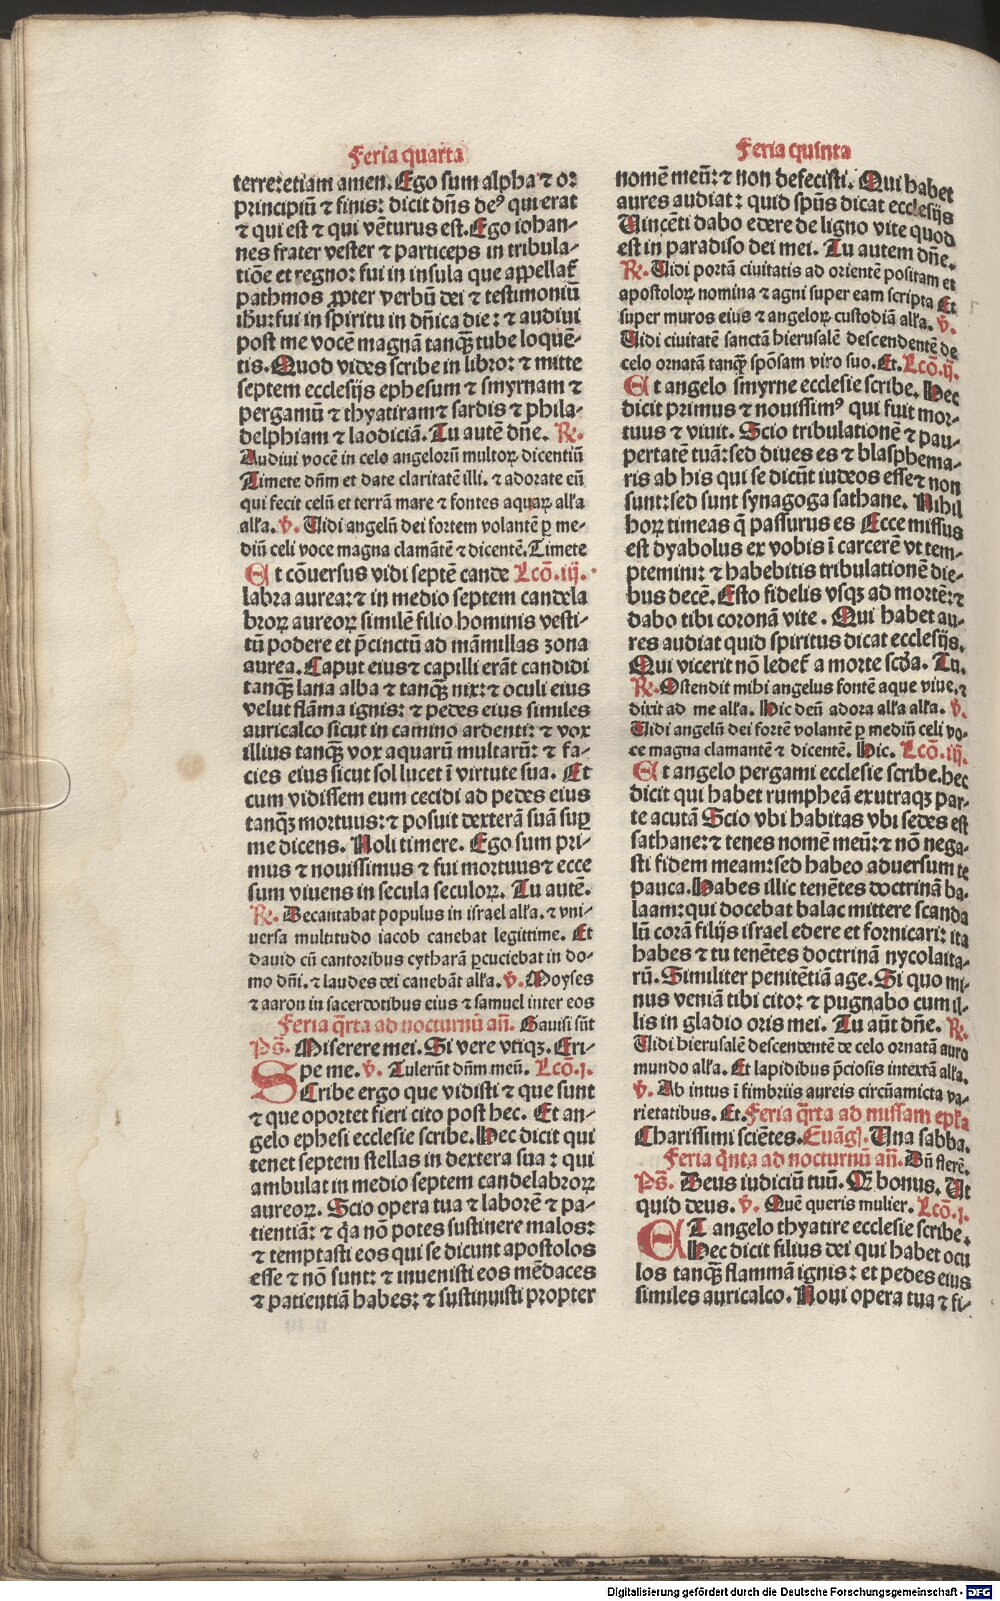 Feria quarta
terre: etiam amen. Ego sum alpha ⁊ o:
principiū ⁊ finis: dicit dn̄s deꝰ qui erat
⁊ qui est ⁊ qui vēturus est. Ego iohan-
nes frater vester ⁊ particeps in tribula-
tiōe et regno: fui in insula que appellat̄
pathmos ꝓpter verbū dei ⁊ testimoniū
ihū: fui in spiritu in dn̄ica die: ⁊ audiui
post me vocē magnā tanqꝫ tube loquē-
tis. Quod vides scribe in libro: ⁊ mitte
septem ecclesijs ephesum ⁊ smyrnam ⁊
pergamū ⁊ thyatiram ⁊ sardis ⁊ phila-
delphiam ⁊ laodiciā. Tu autē dn̄e. ℟.
Audiui vocē in celo angelorū multoꝝ dicentiū
Timete dn̄m et date claritatē illi. ⁊ adorate eū
qui fecit celū et terrā mare ⁊ fontes aquaꝝ alƚa
alƚa. ℣. Uidi angelū dei fortem volantē ꝑ me-
diū celi voce magna clamātē ⁊ dicentē. Timete
Et cōuersus vidi septē cande Lcō. iij.
labra aurea: ⁊ in medio septem candela
broꝝ aureoꝝ similē filio hominis vesti-
tū podere et p̄cinctū ad māmillas zona
aurea. Caput eius ⁊ capilli erāt candidi
tanqꝫ lana alba ⁊ tanqꝫ nix: ⁊ oculi eius
velut flāma ignis: ⁊ pedes eius similes
auricalco sicut in camino ardenti: ⁊ vox
illius tanqꝫ vox aquarū multarū: ⁊ fa-
cies eius sicut sol lucet ī virtute sua. Et
cum vidissem eum cecidi ad pedes eius
tanqꝫ mortuus: ⁊ posuit dexterā suā suꝑ
me dicens. Noli timere. Ego sum pri-
mus ⁊ nouissimus ⁊ fui mortuus ⁊ ecce
sum viuens in secula seculoꝝ. Tu autē.
℟. Decantabat populus in israel alƚa. ⁊ vni-
uersa multitudo iacob canebat legittime. Et
dauid cū cantoribus cytharā ꝑcuciebat in do-
mo dn̄i. ⁊ laudes dei canebāt alƚa. ℣. Moyses
⁊ aaron in sacerdotibus eius ⁊ samuel inter eos
Feria q̄rta ad nocturnū an̄. Gauisi sūt
Ps̄. Miserere mei. Si vere vtiqꝫ. Eri-
pe me. ℣. Tulerūt dn̄m meū. Lcō. j.
Scribe ergo que vidisti ⁊ que sunt
⁊ que oportet fieri cito post hec. Et an-
gelo ephesi ecclesie scribe. Hec dicit qui
tenet septem stellas in dextera sua: qui
ambulat in medio septem candelabroꝝ
aureoꝝ. Scio opera tua ⁊ laborē ⁊ pa-
tientiā: ⁊ q̄a nō potes sustinere malos:
⁊ temptasti eos qui se dicunt apostolos
esse ⁊ nō sunt: ⁊ inuenisti eos mēdaces
⁊ patientiā habes: ⁊ sustinuisti propter
Feria quinta
nomē meū: ⁊ non defecisti. Qui habet
aures audiat: quid spūs dicat ecclesijs
Uincēti dabo edere de ligno vite quod
est in paradiso dei mei. Tu autem dn̄e.
℟. Uidi portā ciuitatis ad orientē positam et
apostoloꝝ nomina ⁊ agni super eam scripta Et
super muros eius ⁊ angeloꝝ custodiā alƚa. ℣.
Uidi ciuitatē sanctā hierusalē descendentē de
celo ornatā tanqꝫ spōsam viro suo. Et. Lcō. ij.
Et angelo smyrne ecclesie scribe. Hec
dicit primus ⁊ nouissimꝰ qui fuit mor-
tuus ⁊ viuit. Scio tribulationē ⁊ pau-
pertatē tuā: sed diues es ⁊ blasphema-
ris ab his qui se dicūt iudeos esse ⁊ non
sunt: sed sunt synagoga sathane. Nihil
hoꝝ timeas q̄ passurus es Ecce missus
est dyabolus ex vobis ī carcerē vt tem-
ptemini: ⁊ habebitis tribulationē die-
bus decē. Esto fidelis vsqꝫ ad mortē: ⁊
dabo tibi coronā vite. Qui habet au-
res audiat quid spiritus dicat ecclesijs.
Qui vicerit nō ledet̄ a morte scd̄a. Tu.
℟. Ostendit mihi angelus fontē aque viue. ⁊
dixit ad me alƚa. Hic deū adora alƚa alƚa. ℣.
Uidi angelū dei fortē volantē ꝑ mediū celi vo-
ce magna clamantē ⁊ dicentē. Hic. Lcō. iij.
Et angelo pergami ecclesie scribe. hec
dicit qui habet rumpheā ex utraqꝫ par-
te acutā Scio vbi habitas vbi sedes est
sathane: ⁊ tenes nomē meū: ⁊ nō nega-
sti fidem meam: sed habeo aduersum te
pauca. Habes illic tenētes doctrinā ba-
laam: qui docebat balac mittere scanda
lū corā filijs israel edere et fornicari: ita
habes ⁊ tu tenētes doctrinā nycolaita-
rū. Similiter penitētiā age. Si quo mi-
nus veniā tibi cito: ⁊ pugnabo cum il-
lis in gladio oris mei. Tu aūt dn̄e. ℟.
Uidi hierusalē descendentē de celo ornatā auro
mundo alƚa. Et lapidibus p̄ciosis intextā alƚa.
℣. Ab intus ī fimbriis aureis circūamicta va-
rietatibus. Et. Feria q̄rta ad missam epƚa
Charissimi sciētes. Euāgƚ. Una sabba.
Feria q̄nta ad nocturnū an̄. Dū flerē.
Ps̄. Deus iudiciū tuū. Qm̄ bonus. Ut
quid deus. ℣. Quē queris mulier. Lcō. j.
ET angelo thyatire ecclesie scribe.
Hec dicit filius dei qui habet ocu
los tanqꝫ flammā ignis: et pedes eius
similes auricalco. Noui opera tua ⁊ fi-
Digitalisierung gefördert durch die Deutsche Forschungsgemeinschaft - DFG